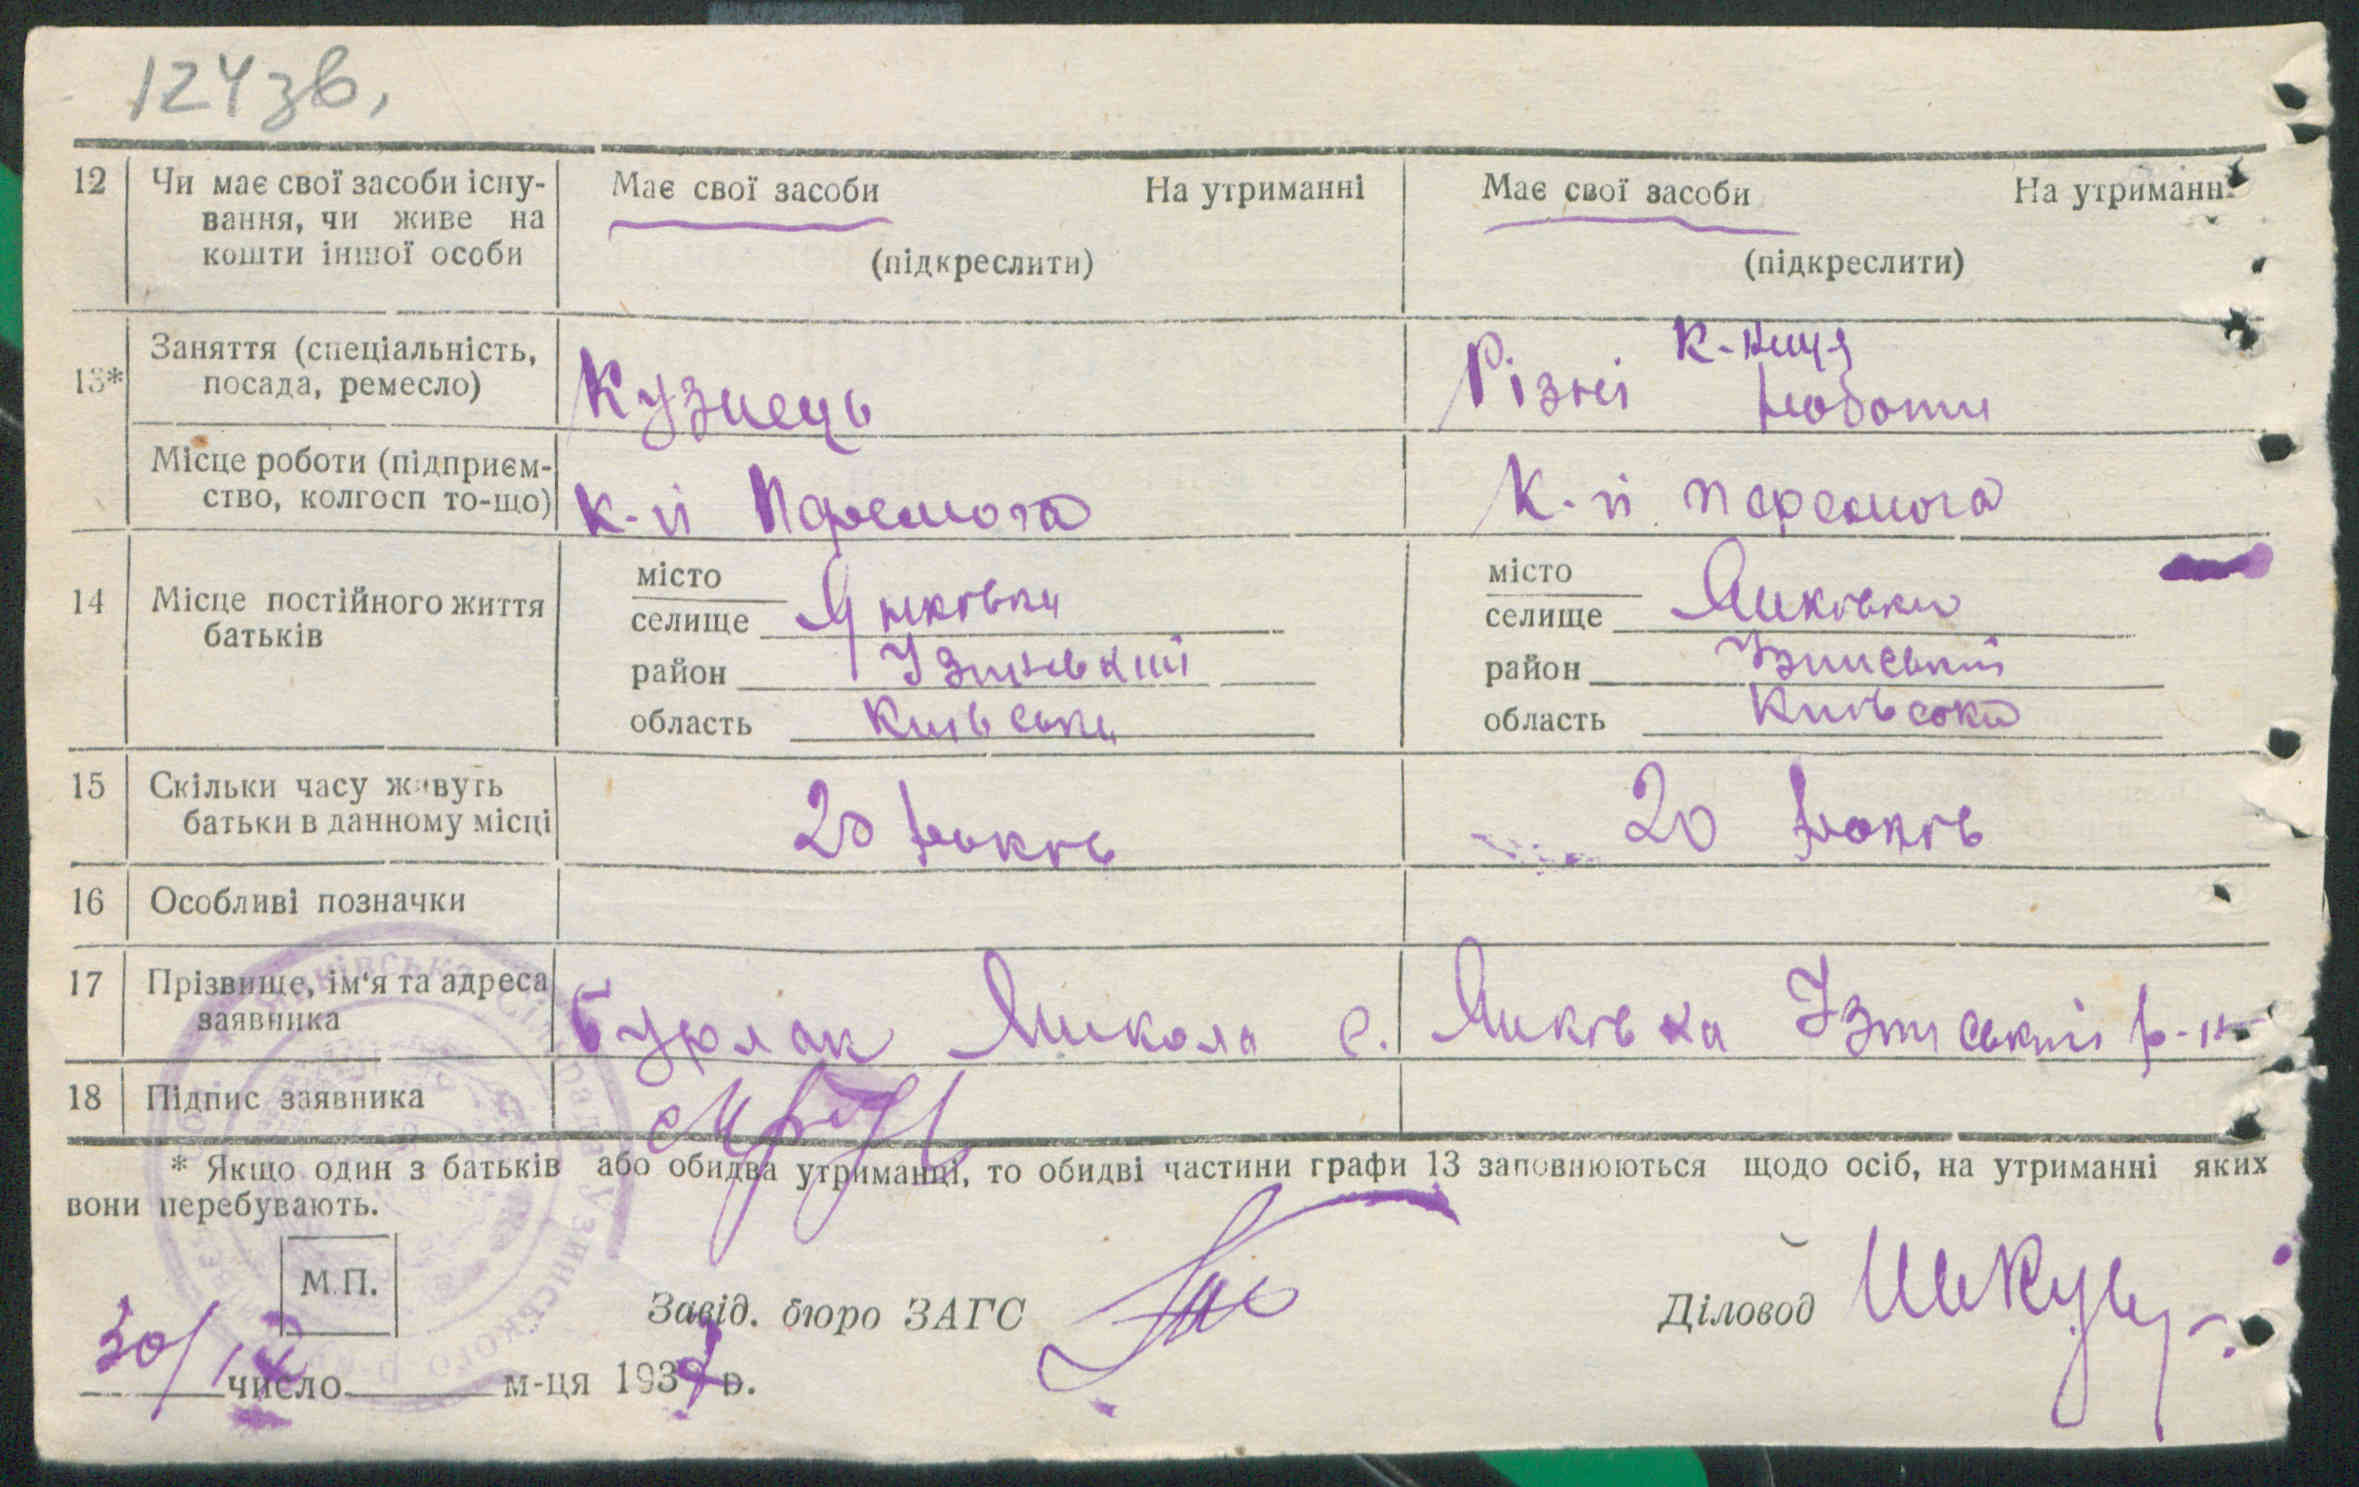 124 зв,
12 Чи має свої засоби існу- Має свої засоби На утриманні Має свої засоби На утриманні
вання, чи живе на
кошти іншої особи (підкреслити) (підкреслити)
13* Заняття (спеціальність, К-ниця
посада, ремесло) Кузнець Різні роботи
Місце роботи (підприєм-
ство, колгосп то-що) к-п Перемога к-п Перемога
14 Місце постійного життя батьків
місто
селище Янківка
район Узинський
область Київська
місто
селище Янківка
район Узинський
область Київська
15 Скільки часу живуть
батьки в данному місці 20 років 20 років
16 Особливі позначки
17 Прізвище, ім'я та адреса
заявника Бурлак Микола с. Янківка Узинський р-н
18 Підпис заявника
* Якщо один з батьків або обидва утриманці, то обидві частини графи 13 заповнюються щодо осіб, на утриманні яких
вони перебувають.
М.П.
Завід. бюро ЗАГС Діловод
30/ число м-ця 1937 р.